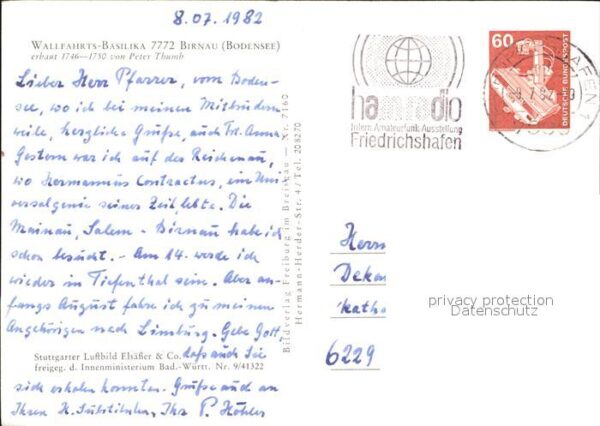 8.07.1982
WALLFAHRTS-BASILIKA 7772 BIRNAU (BODENSEE)
erbaut 1746—1750 von Peter Thumb
Lieber Herr Pfarrer, vom Boden-
see, wo ich bei meinen Mitbrüdern
weile, herzliche Grüße, auch Frl. Anna.
Gestern war ich auf der Reichenau,
wo Hermannus Contractus, ein Uni
versalgenie seiner Zeit, lebte. Die
Mainau, Salem - Birnau habe ich
schon besucht. - Am 14. werde ich
wieder in Tiefenthal sein. Aber an-
fangs August fahre ich zu meinen
Angehörigen nach Limburg. Gebe Gott,
Stuttgarter Luftbild Elsäßer & Co. daß auch Sie
freigeg. d. Innenministerium Bad.-Württ. Nr. 9/41322
sich erholen konnten. Grüße auch an
Ihren H. Substituten, Ihr P. Köhler
Bildverlag Freiburg im Breisgau — Nr. 7160
Hermann-Herder-Str. 4 / Tel. 208270
ham radio
Intern. Amateurfunk-Ausstellung
Friedrichshafen
60
DEUTSCHE BUNDESPOST
Herrn
Dekan
katho
6229
privacy protection
Datenschutz